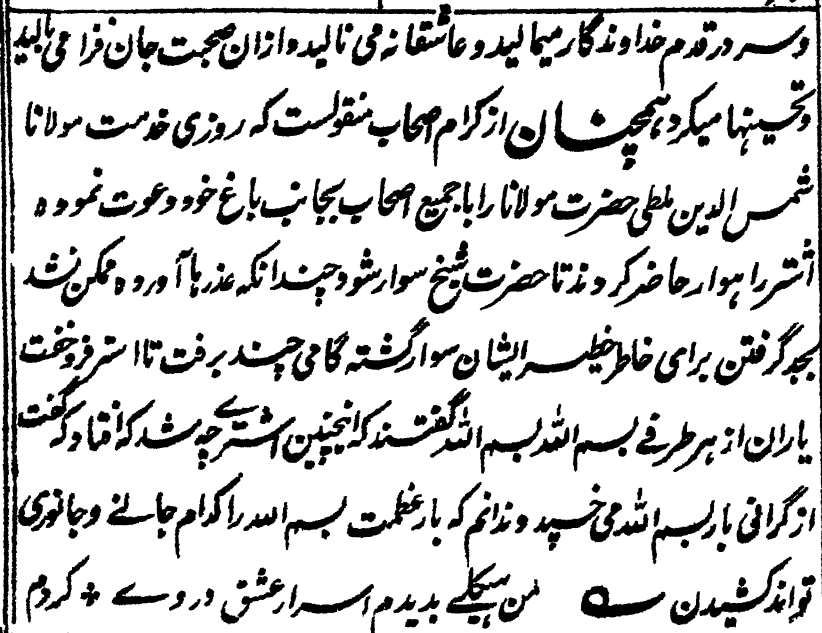 وسر در قدم خداوندگار میمالید و عاشقانه می نالید و ازان صحبت جان فزا می بالید
و تحسینها میکرد همچنان از کرام اصحاب منقولست که روزی خدمت مولانا
شمس الدین ملطی حضرت مولانا را با جمیع اصحاب بجانب باغ خود دعوت نموده
اشتر راهوار حاضر کردند تا حضرت شیخ سوار شود چندانکه عذرها آورده ممکن نشد
بجد گرفتن برای خاطر خطیر ایشان سوار گشته گامی چند برفت تا استر فروخفت
یاران از هر طرفے بسم الله بسم الله گفتند که اینچنین اشترے چه شد که افتاد که گفت
از گرانی بار بسم الله می خسپد و ندانم که بار عظمت بسم الله را کدام جانے و جانوری
تواند کشیدن من هیکلے بدیدم اسرار عشق در وے * کردم